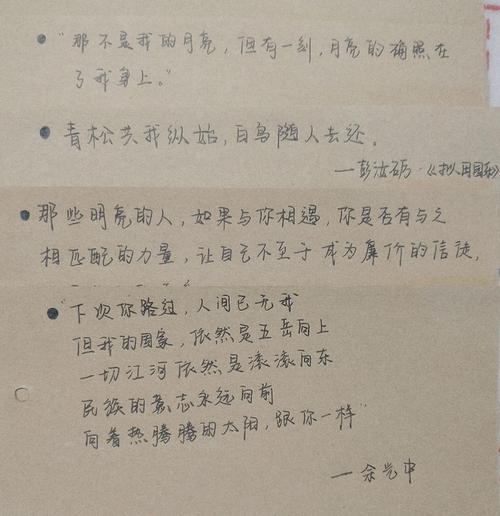 “那不是我的月亮，但有一刻，月亮的确照在
了我身上。”
青松共我纵始，白鸟随人去还。
—彭汝砺·《拟田园乐》
那些明亮的人，如果与你相遇，你是否有与之
相匹配的力量，让自己不至于成为廉价的信徒，
“下次你路过，人间已无我
但我的国家，依然是五岳向上
一切江河依然是滚滚向东
民族的意志永远向前
向着热腾腾的太阳，跟你一样”
—余光中